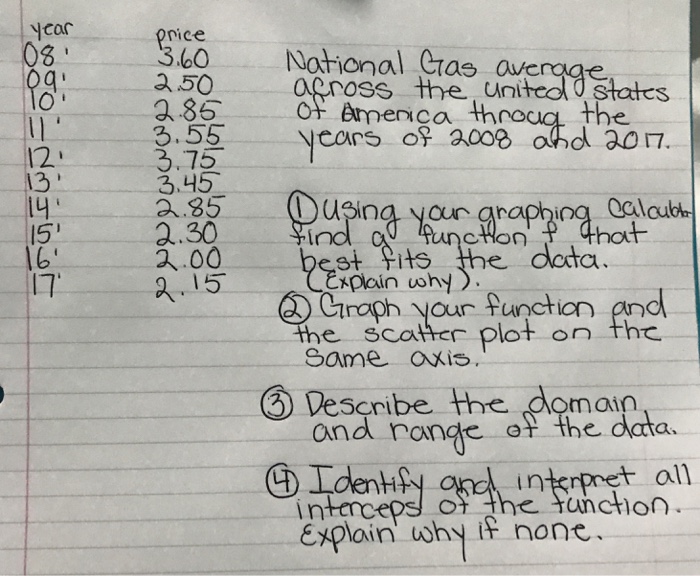 year price
08' 3.60
09' 2.50
10' 2.85
11' 3.55
12' 3.75
13' 3.45
14' 2.85
15' 2.30
16' 2.00
17' 2.15
National Gas average
across the united states
of America throug the
years of 2008 and 2017.
① Using your graphing Calculator
find a function f that
best fits the data.
(Explain why).
② Graph your function and
the scatter plot on the
same axis.
③ Describe the domain
and range of the data.
④ Identify and interpret all
interceps of the function.
Explain why if none.